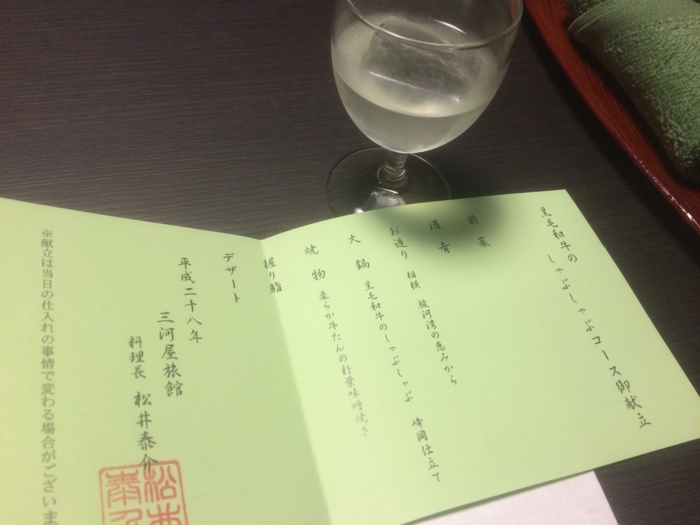 黒毛和牛の
しゃぶしゃぶコース御献立
前菜
酒肴
お造り 相模 駿河湾の恵みから
大鍋 黒毛和牛のしゃぶしゃぶ 峰岡仕立て
焼物 柔らか牛たんの朴葉味噌焼き
握り鮨
デザート
平成二十八年
三河屋旅館
料理長 松井泰介
※献立は当日の仕入れの事情で変わる場合がございま